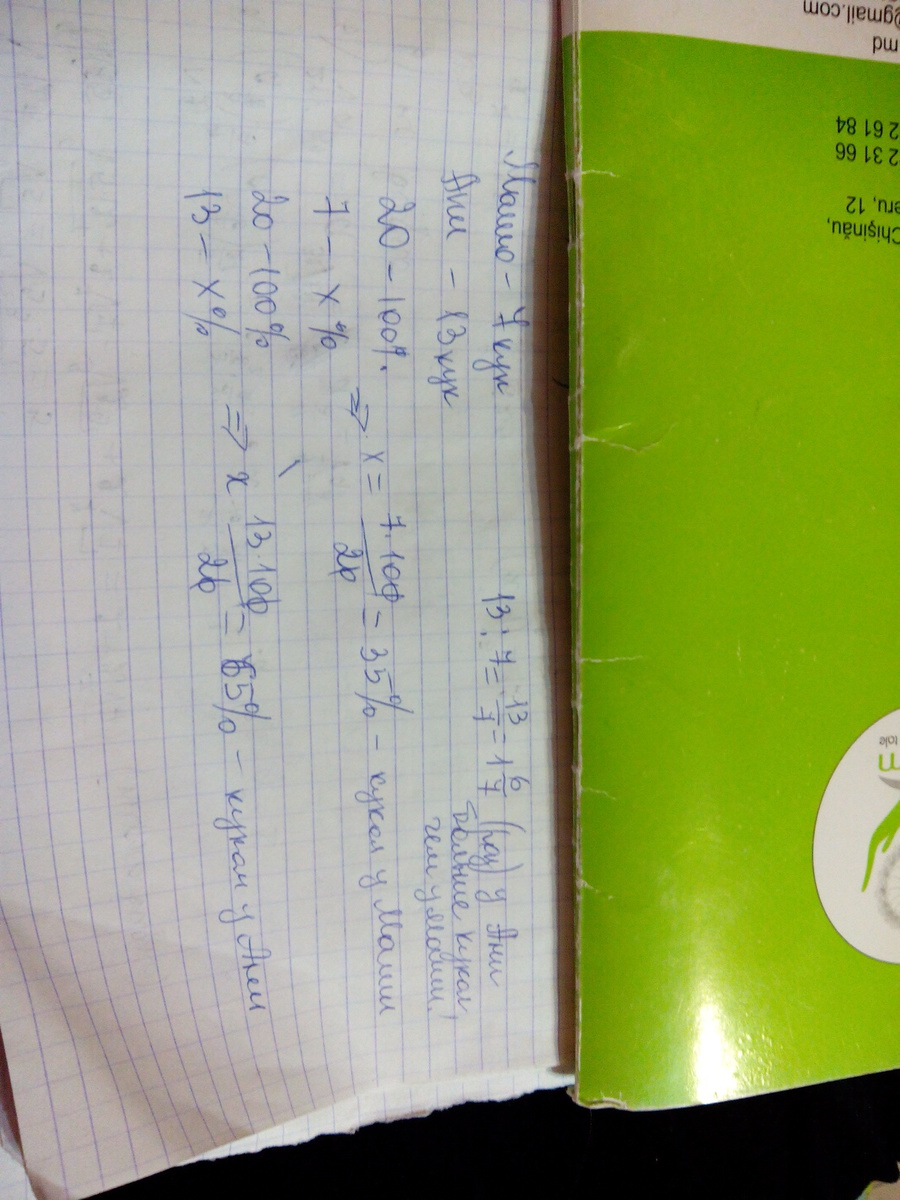 Маши - 7 кук
Ани - 13 кук
13 : 7 = 13/7 = 1 6/7 (раз) у Ани
больше кукол,
чем у Маши.
20 - 100%
7 - x%
=> x = 7·100/20 = 35% - кукол у Маши
20 - 100%
13 - x%
=> x 13·100/20 = 65% - кукол у Ани
@gmail.com
md
2 61 84
2 31 66
eru, 12
Chişinău,
m
tale